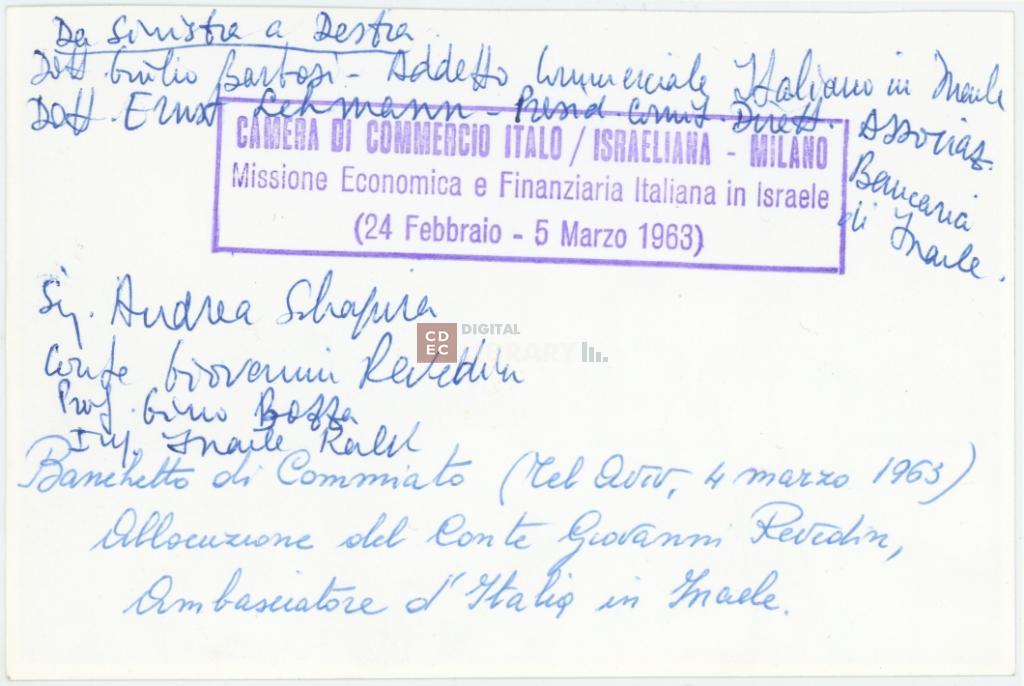 Da Sinistra a Destra
Dott. Giulio Barbosi - Addetto Commerciale Italiano in Israele
Dott Ernst Lehmann - Presid Comit Dirett. Associaz.
Bancaria
di Israele.
CAMERA DI COMMERCIO ITALO / ISRAELIANA - MILANO
Missione Economica e Finanziaria Italiana in Israele
(24 Febbraio - 5 Marzo 1963)
Sig. Andrea Schapira
CDEC DIGITAL LIBRARY
Conte Giovanni Revedin
Prof. Gino Bozza
Ing. Israele
Banchetto di Commiato (Tel Aviv, 4 marzo 1963)
Allocuzione del Conte Giovanni Revedin,
Ambasciatore d'Italia in Israele.